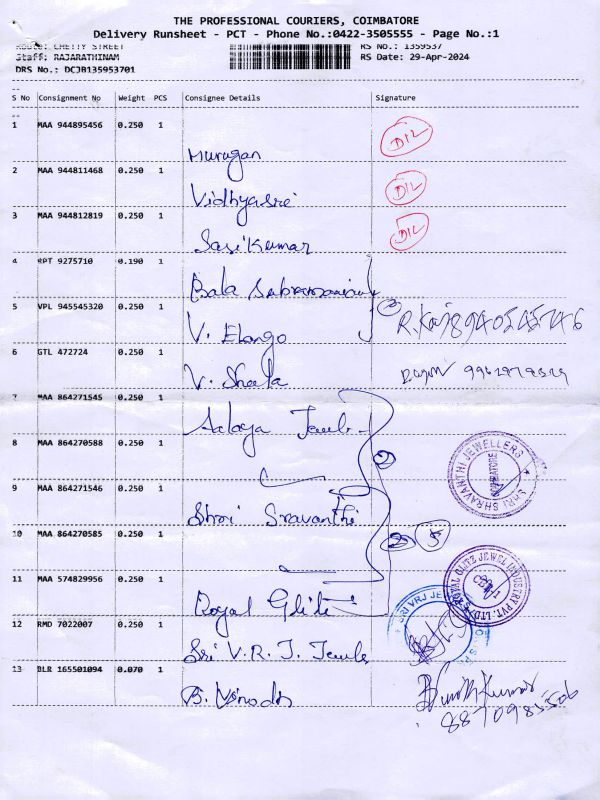 THE PROFESSIONAL COURIERS, COIMBATORE
Delivery Runsheet - PCT - Phone No.:0422-3505555 - Page No.:1
Route: CHETTY STREET RS No.: 1359537
Staff: RAJARATHINAM RS Date: 29-Apr-2024
DRS No.: DCJB135953701
S No Consignment No Weight PCS Consignee Details Signature
1 MAA 944895456 0.250 1
Murugan DIL
2 MAA 944811468 0.250 1
Vidhyasri DIL
3 MAA 944812819 0.250 1
Sasikumar DIL
4 RPT 9275710 0.190 1
Bala Subramaniam
5 VPL 945545320 0.250 1
V. Elango 2
6 GTL 472724 0.250 1
V. Shaila
7 MAA 864271545 0.250 1
Aalaya Jewels
8 MAA 864270588 0.250 1
2
SHRI SHRAVANTHI JEWELLERS
COIMBATORE
9 MAA 864271546 0.250 1
Shri Sravanthi
10 MAA 864270585 0.250 1
5
11 MAA 574829956 0.250 1
Royal Glitz
ROYAL GLITZ JEWEL INDUSTRY PVT. LTD.
12 RMD 7022007 0.250 1
Sri V.R.J. Jewels
SRI VRJ JE
13 BLR 165501094 0.070 1
B. Vinoth
Vinoth Kumar
8870985506